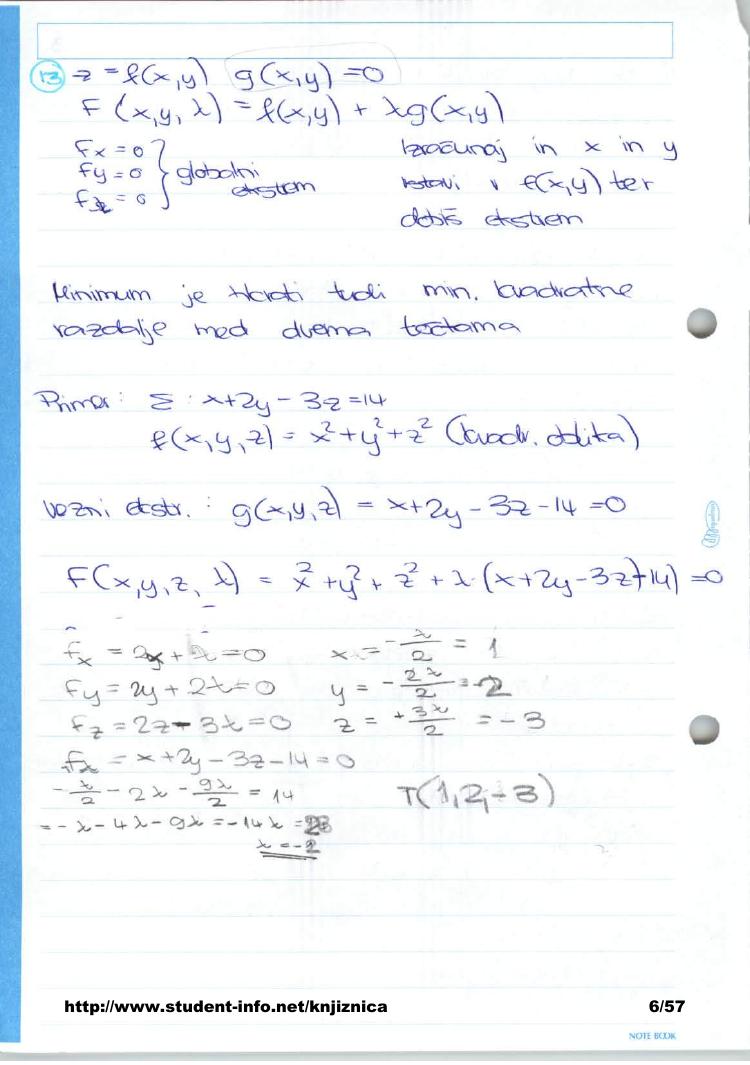 13 z = f(x,y) g(x,y) = 0
F (x,y, λ) = f(x,y) + λg(x,y)
Fx = 0
Fy = 0 } globalni ekstrem
Fλ = 0
Izračunaj in x in y
vstavi v f(x,y) ter
dobiš ekstrem
Minimum je hkrati tudi min. kvadratne
razdalje med dvema točkama
Primer: Σ : x+2y - 3z = 14
f(x,y,z) = x² + y² + z² (kvadr. oblika)
vezni ekstr. : g(x,y,z) = x+2y - 3z - 14 = 0
F(x,y,z, λ) = x² + y² + z² + λ·(x+2y-3z-14) = 0
fx = 2x + λ = 0 x = -λ/2 = 1
Fy = 2y + 2λ = 0 y = -2λ/2 = 2
fz = 2z - 3λ = 0 z = +3λ/2 = -3
fλ = x+2y - 3z - 14 = 0
-λ/2 - 2λ - 9λ/2 = 14
= -λ - 4λ - 9λ = -14λ = 28
λ = -2
T(1,2,-3)
http://www.student-info.net/knjiznica 6/57
NOTE BOOK